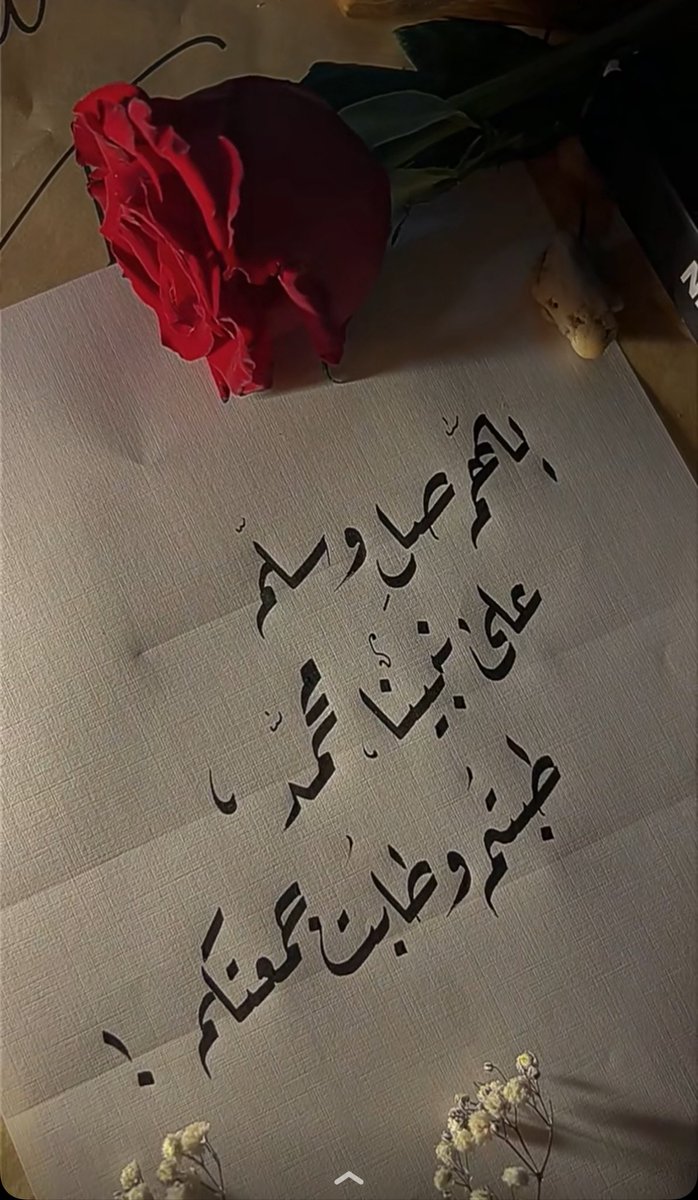 اللهم صلِ وسلم
على نبينا محمد،
طبتم وطابت جمعتكم!